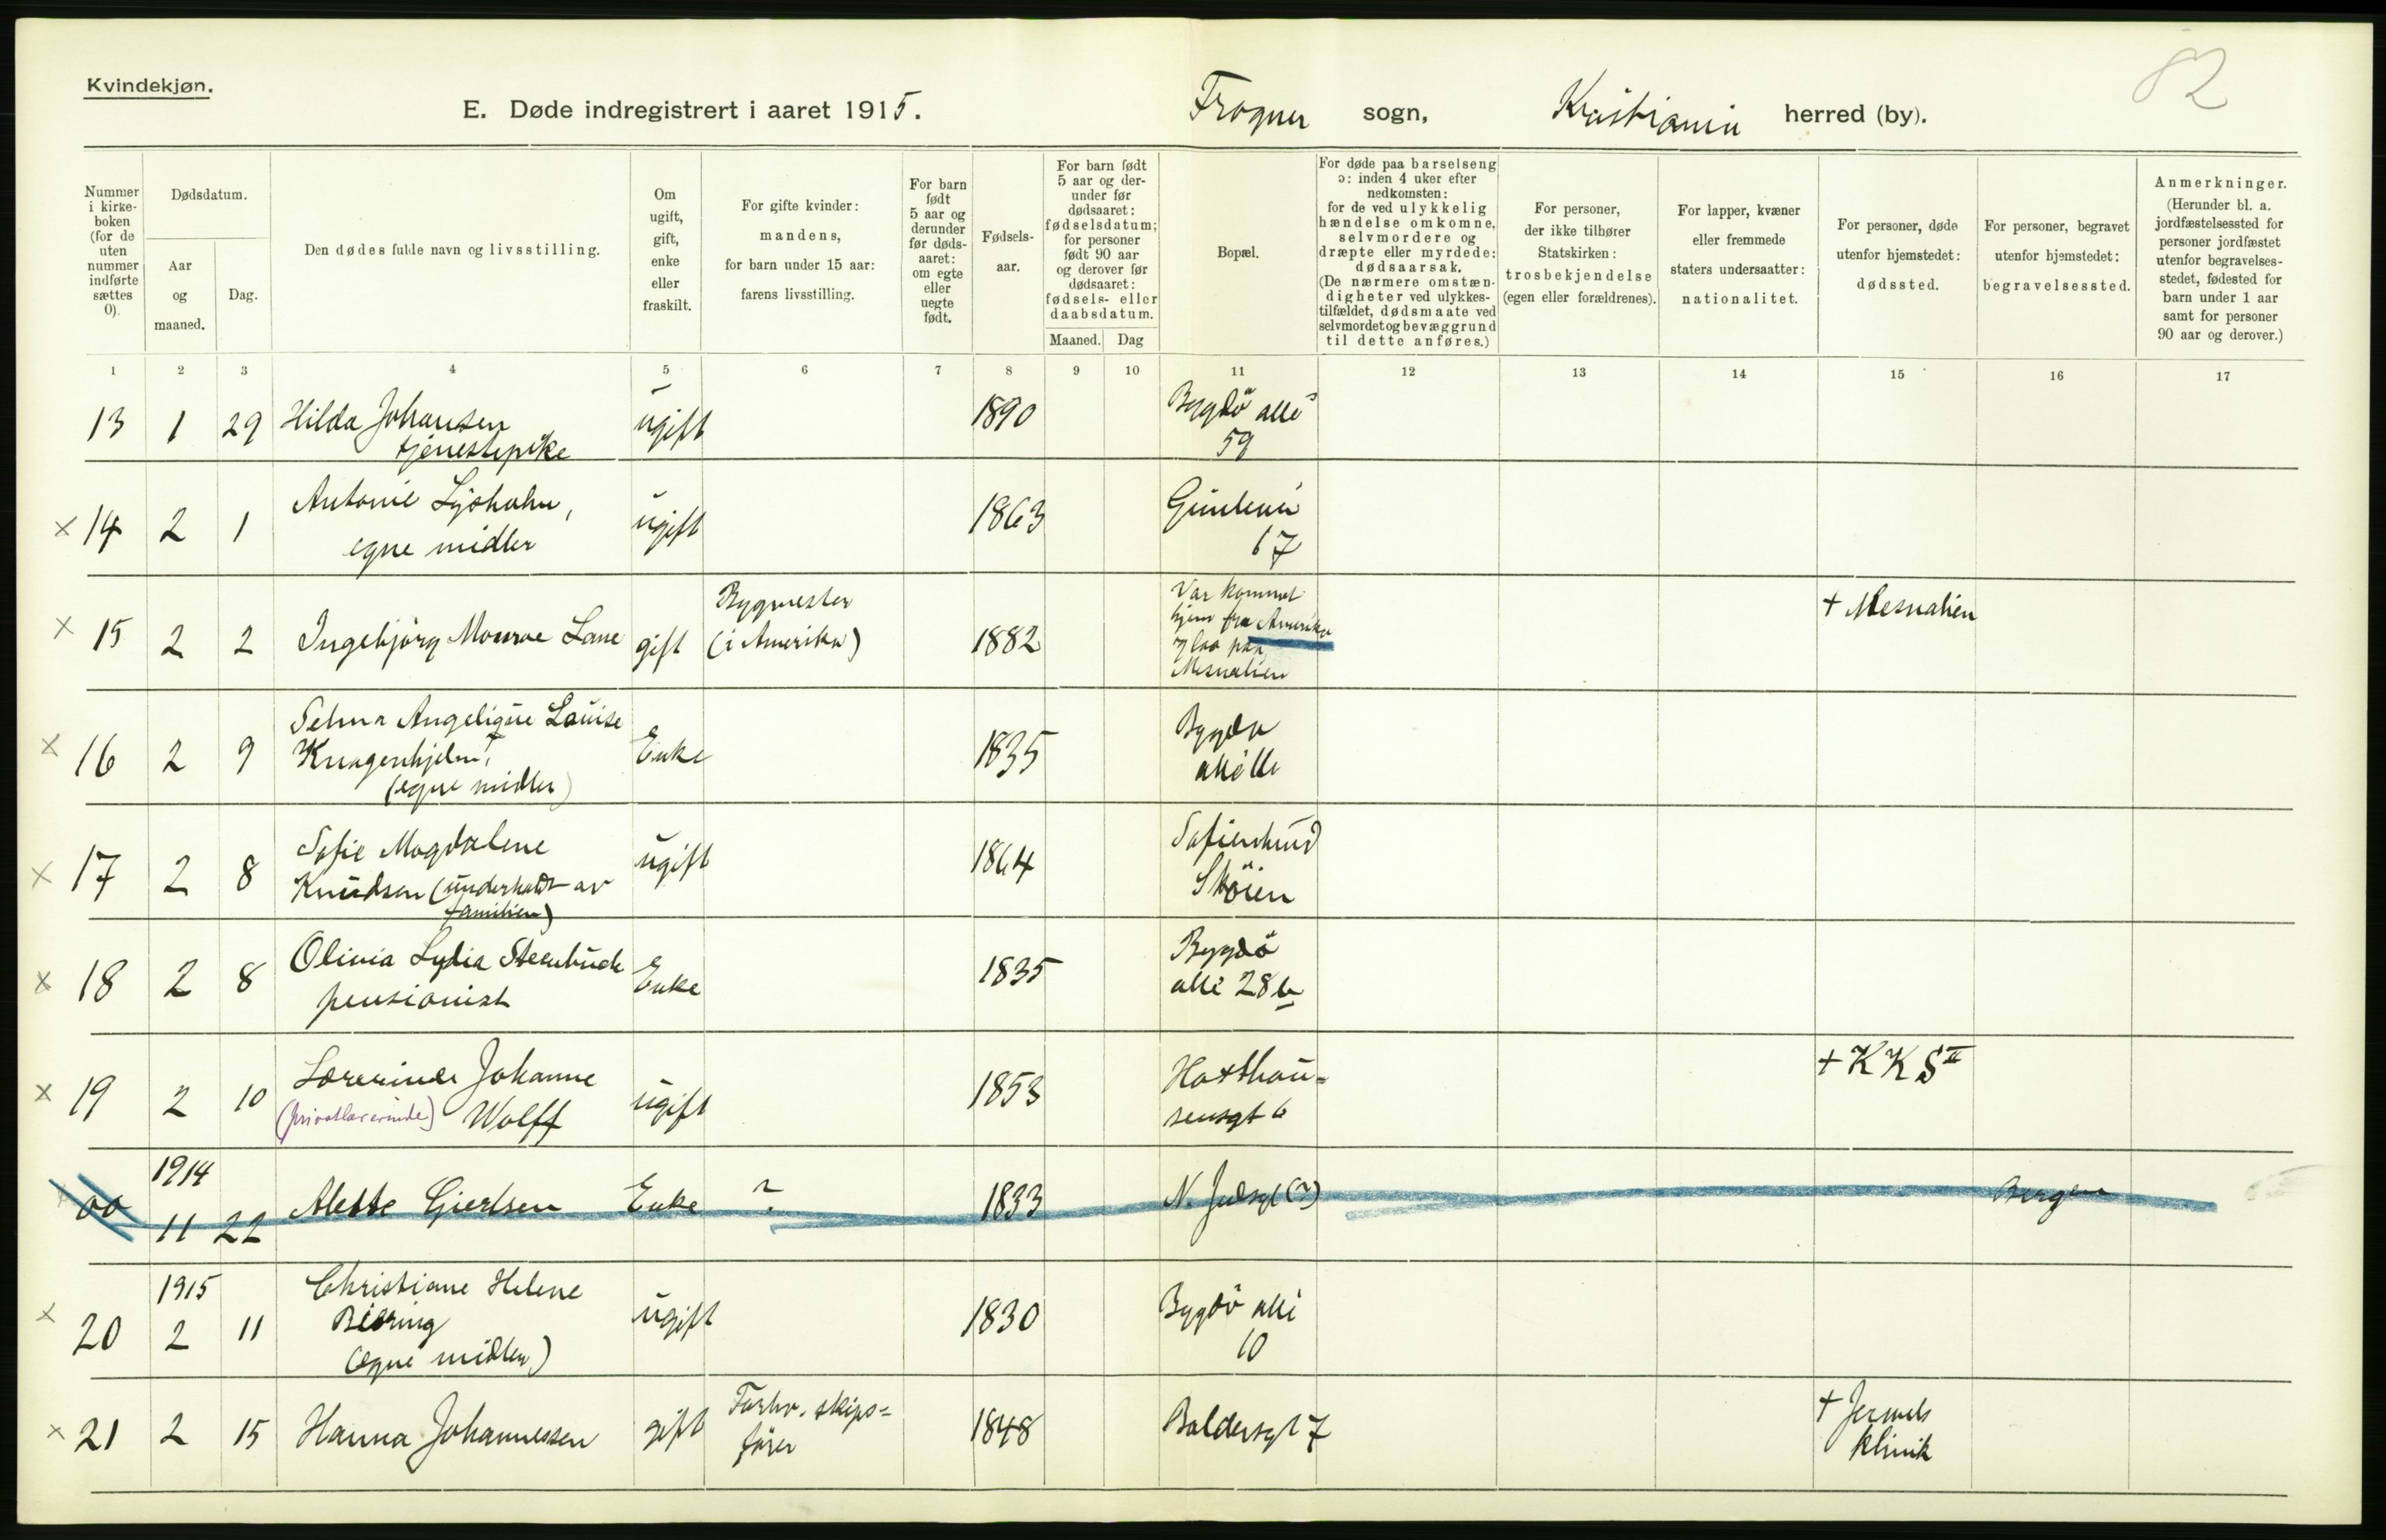 82
Kvindekjøn.
E. Døde indregistrert i aaret 1915. Frogner sogn, Kristiania herred (by).
Nummer i kirke- boken (for de uten nummer indførte sættes 0).
Dødsdatum.
Aar og maaned.
Dag.
Den dødes fulde navn og livsstilling.
Om ugift, gift, enke eller fraskilt.
For gifte kvinder: mandens, for barn under 15 aar: farens livsstilling.
For barn født 5 aar og derunder før døds- aaret: om egte eller uegte født.
Fødsels- aar.
For barn født 5 aar og der- under før dødsaaret: fødselsdatum; for personer født 90 aar og derover før dødsaaret: fødsels- eller daabsdatum.
Maaned. Dag
Bopæl.
For døde paa barselseng ɔ: inden 4 uker efter nedkomsten: for de ved ulykkelig hændelse omkomne, selvmordere og dræpte eller myrdede: dødsaarsak. (De nærmere omstæn- digheter ved ulykkes- tilfældet, dødsmaate ved selvmordet og bevæggrund til dette anføres.)
For personer, der ikke tilhører Statskirken: trosbekjendelse (egen eller forældrenes).
For lapper, kvæner eller fremmede staters undersaatter: nationalitet.
For personer, døde utenfor hjemstedet: dødssted.
For personer, begravet utenfor hjemstedet: begravelsessted.
Anmerkninger. (Herunder bl. a. jordfæstelsessted for personer jordfæstet utenfor begravelses- stedet, fødested for barn under 1 aar samt for personer 90 aar og derover.)
1 2 3 4 5 6 7 8 9 10 11 12 13 14 15 16 17
13 1 29 Hilda Johansen ugift 1890 Bygdö allé
tjenestepike 59
x 14 2 1 Antonie Lysholm, ugift 1863
egne midler 17
x 15 2 2 Ingebjörg Monroe Lane gift Bygmester (i Amerika) 1882 Var kommet + Mesnalien
hjem fra Amerika
og laa paa
Mesnalien
x 16 2 9 Selma Angelique Louise Enke 1835 Bygdø
Knagenhjelm, allé
(egne midler)
x 17 2 8 Sofie Magdalene ugift 1864 Sofienlund
Knudsen (underholdt av Sköien
familien)
x 18 2 8 Olivia Lydia Steenbuck Enke 1835 Bygdö
pensionist allé 28 b
x 19 2 10 Lærerinde Johanne ugift 1853 Haxthau- + KKS II
(privatlærerinde) Wolff sensgt 6
1914
00 11 22 Alette Giertsen Enke ? 1833 N. Juelsgt (?) Bergen
1915
x 20 2 11 Christiane Helene ugift 1830 Bygdö allé
Biering 10
(egne midler)
x 21 2 15 Hanna Johannessen gift Forhv. skips- 1848 Baldersgt 7 +
fører klinik